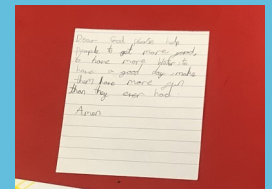 Dear God please help
people to get more food,
to have more water to
have a good day make
them have more fun
than they ever had
Amen